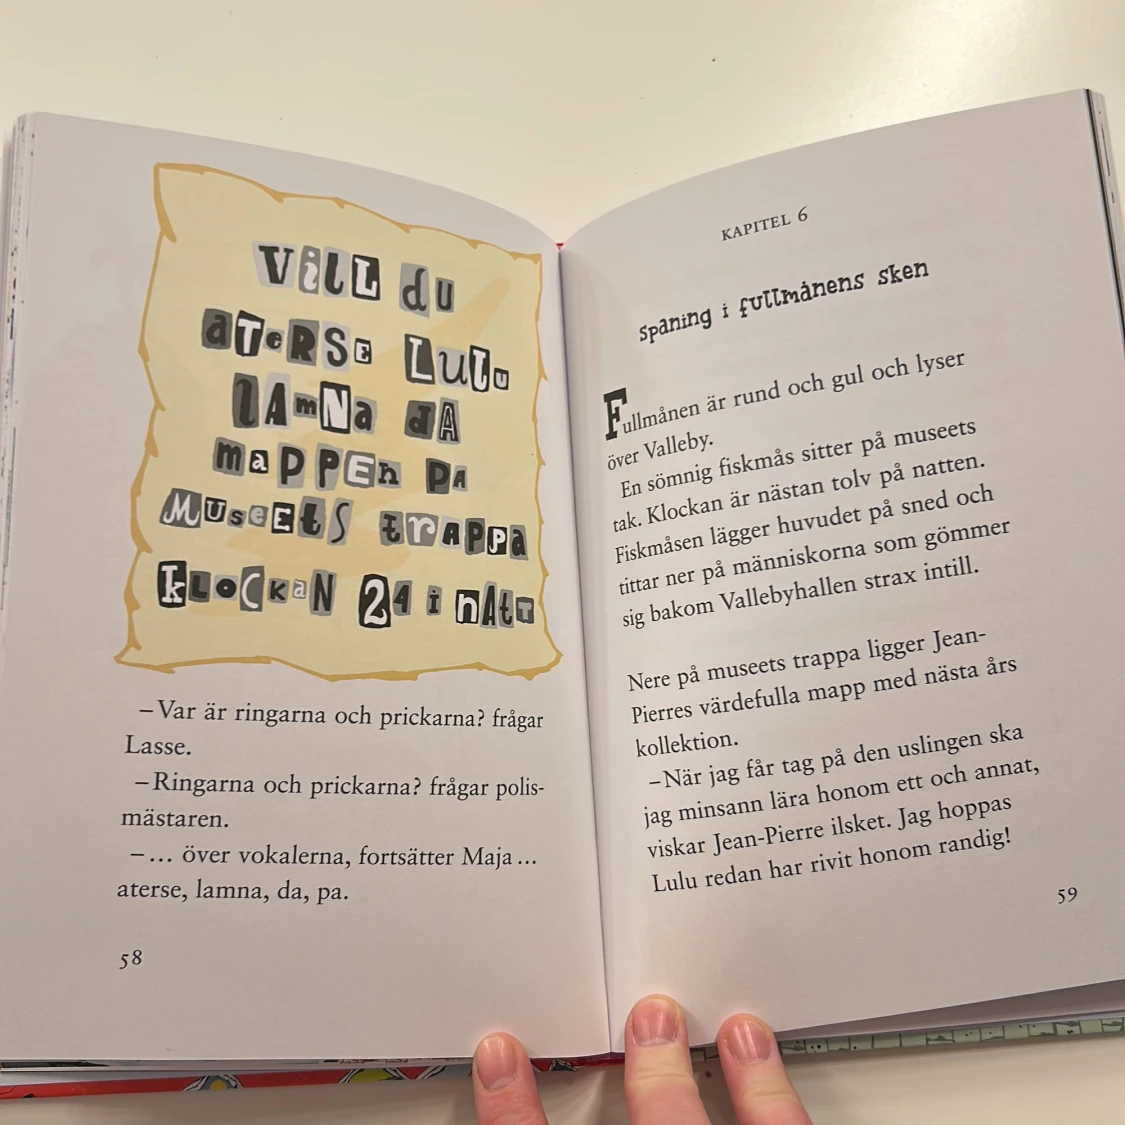 Vill du
aterse Lulu
lamna da
mappen pa
Museets trappa
klockan 24 i natt
– Var är ringarna och prickarna? frågar
Lasse.
– Ringarna och prickarna? frågar polis-
mästaren.
– … över vokalerna, fortsätter Maja …
aterse, lamna, da, pa.
58
KAPITEL 6
Spaning i fullmånens sken
Fullmånen är rund och gul och lyser
över Valleby.
En sömnig fiskmås sitter på museets
tak. Klockan är nästan tolv på natten.
Fiskmåsen lägger huvudet på sned och
tittar ner på människorna som gömmer
sig bakom Vallebyhallen strax intill.
Nere på museets trappa ligger Jean-
Pierres värdefulla mapp med nästa års
kollektion.
– När jag får tag på den uslingen ska
jag minsann lära honom ett och annat,
viskar Jean-Pierre ilsket. Jag hoppas
Lulu redan har rivit honom randig!
59